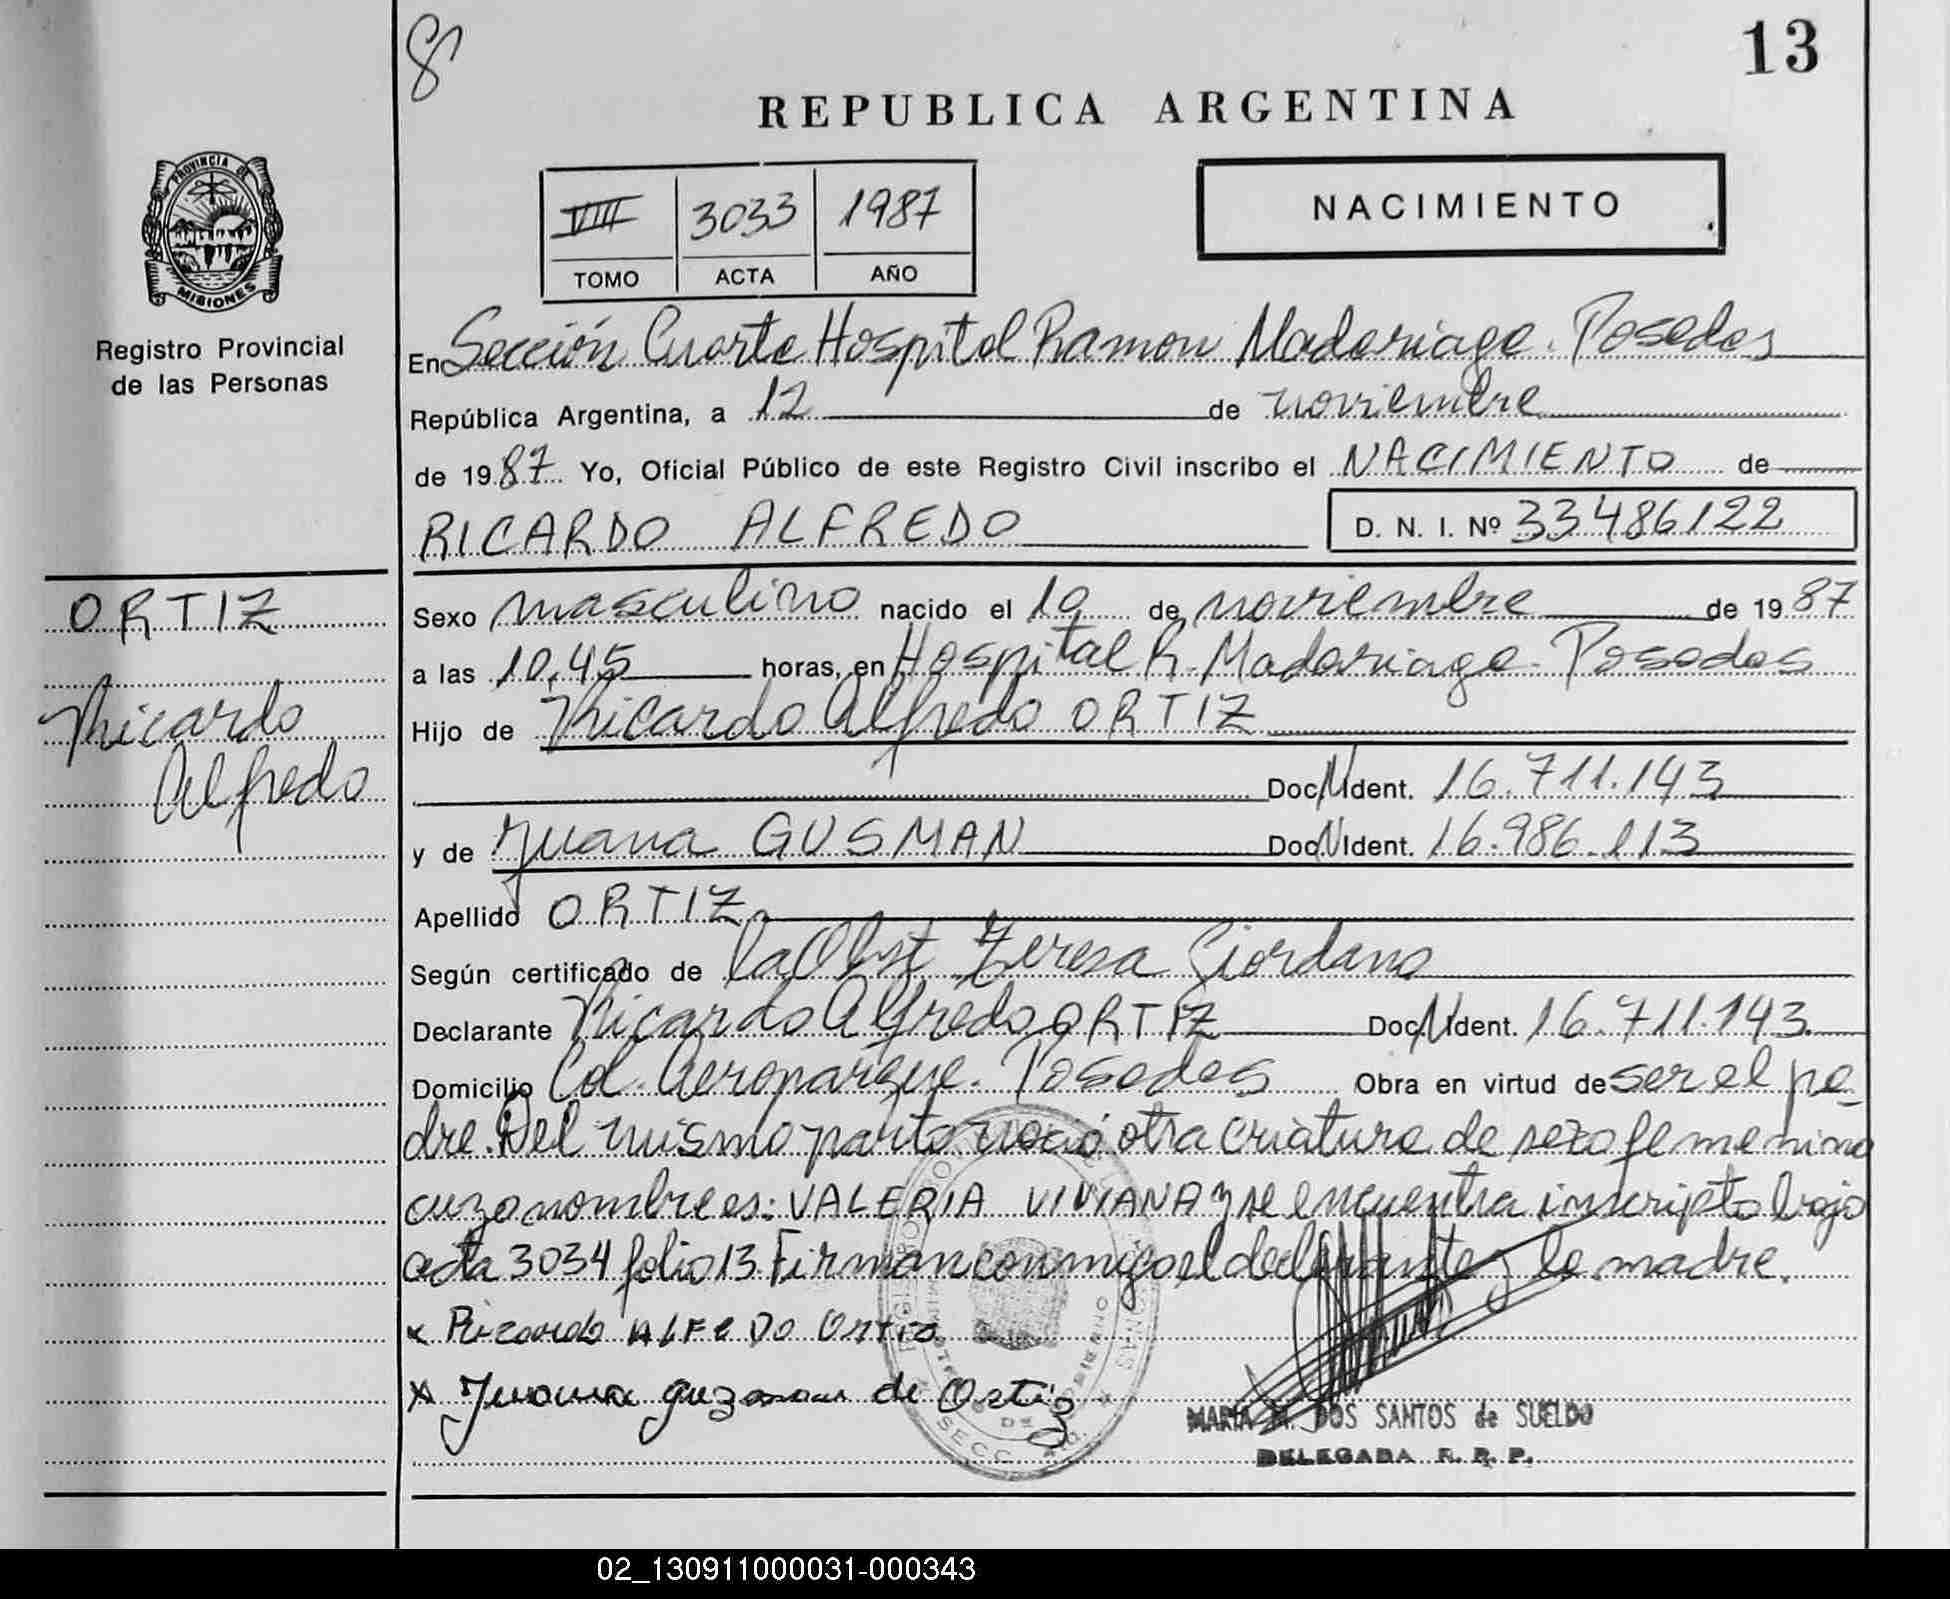 8
13
REPUBLICA ARGENTINA
PROVINCIA DE
MISIONES
Registro Provincial
de las Personas
VIII 3033 1987
TOMO ACTA AÑO
NACIMIENTO
En Sección Cuarta Hospital Ramon Madariaga. Posadas
República Argentina, a 12 de noviembre
de 1987 Yo, Oficial Público de este Registro Civil inscribo el NACIMIENTO de
RICARDO ALFREDO
D. N. I. Nº 33486122
ORTIZ
Ricardo
Alfredo
Sexo masculino nacido el 10 de noviembre de 1987
a las 10.45 horas, en Hospital R. Madariaga. Posadas
Hijo de Ricardo Alfredo ORTIZ
Doc N Ident. 16.711.143
y de Juana GUSMAN Doc N Ident. 16.986.113
Apellido ORTIZ
Según certificado de la Obst Teresa Giordano
Declarante Ricardo Alfredo ORTIZ Doc N Ident. 16.711.143
Domicilio Col. Aeroparque. Posadas Obra en virtud de ser el pa-
dre. Del mismo parto nació otra criatura de sexo femenino
cuyo nombre es: VALERIA VIVIANA y se encuentra inscripto bajo
acta 3034 folio 13. Firman conmigo el declarante y la madre.
x Ricardo ALFEDO Ortiz
x Juana guzman de Ortiz
MARIA DOS SANTOS de SUELDO
DELEGADA R. P. P.
02_130911000031-000343